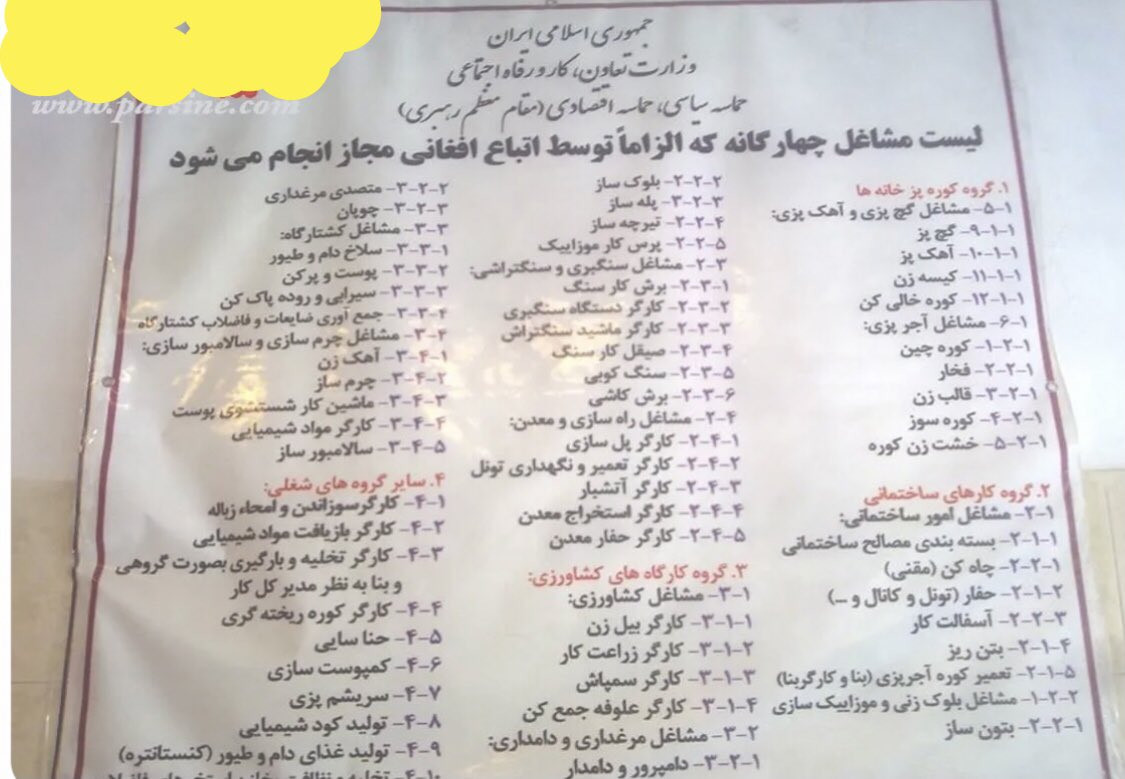 www.parsine.com
جمهوری اسلامی ایران
وزارت تعاون، کار و رفاه اجتماعی
حماسه سیاسی، حماسه اقتصادی (مقام معظم رهبری)
لیست مشاغل چهارگانه که الزاماً توسط اتباع افغانی مجاز انجام می شود
۱. گروه کوره پز خانه ها
۱-۵- مشاغل گچ پزی و آهک پزی:
۱-۱-۹- گچ پز
۱-۱-۱۰- آهک پز
۱-۱-۱۱- کیسه زن
۱-۱-۱۲- کوره خالی کن
۱-۶- مشاغل آجر پزی:
۱-۲-۱- کوره چین
۱-۲-۲- فخار
۱-۲-۳- قالب زن
۱-۲-۴- کوره سوز
۱-۲-۵- خشت زن کوره
۲. گروه کارهای ساختمانی
۲-۱- مشاغل امور ساختمانی:
۲-۱-۱- بسته بندی مصالح ساختمانی
۲-۲-۱- چاه کن (مقنی)
۲-۱-۲- حفار (تونل و کانال و ...)
۲-۲-۳- آسفالت کار
۲-۱-۴- بتن ریز
۲-۱-۵- تعمیر کوره آجرپزی (بنا و کارگربنا)
۲-۲-۱- مشاغل بلوک زنی و موزاییک سازی
۲-۲-۱- بتون ساز
۲-۲-۲- بلوک ساز
۲-۲-۳- پله ساز
۲-۲-۴- تیرچه ساز
۲-۲-۵- پرس کار موزاییک
۲-۳- مشاغل سنگبری و سنگتراشی:
۲-۳-۱- برش کار سنگ
۲-۳-۲- کارگر دستگاه سنگبری
۲-۳-۳- کارگر ماشید سنگتراش
۲-۳-۴- صیقل کار سنگ
۲-۳-۵- سنگ کوبی
۲-۳-۶- برش کاشی
۲-۴- مشاغل راه سازی و معدن:
۲-۴-۱- کارگر پل سازی
۲-۴-۲- کارگر تعمیر و نگهداری تونل
۲-۴-۳- کارگر آتشبار
۲-۴-۴- کارگر استخراج معدن
۲-۴-۵- کارگر حفار معدن
۳. گروه کارگاه های کشاورزی:
۳-۱- مشاغل کشاورزی:
۳-۱-۱- کارگر بیل زن
۳-۱-۲- کارگر زراعت کار
۳-۱-۳- کارگر سمپاش
۳-۱-۴- کارگر علوفه جمع کن
۳-۲- مشاغل مرغداری و دامداری:
۳-۲-۱- دامپرور و دامدار
۳-۲-۲- متصدی مرغداری
۳-۲-۳- چوپان
۳-۳- مشاغل کشتارگاه:
۳-۳-۱- سلاخ دام و طیور
۳-۳-۲- پوست و پرکن
۳-۳-۳- سیرابی و روده پاک کن
۳-۳-۴- جمع آوری ضایعات و فاضلاب کشتارگاه
۳-۴- مشاغل چرم سازی و سالامبور سازی:
۳-۴-۱- آهک زن
۳-۴-۲- چرم ساز
۳-۴-۳- ماشین کار شستشوی پوست
۳-۴-۴- کارگر مواد شیمیایی
۳-۴-۵- سالامبور ساز
۴. سایر گروه های شغلی:
۴-۱- کارگرسوزاندن و امحاء زباله
۴-۲- کارگر بازیافت مواد شیمیایی
۴-۳- کارگر تخلیه و بارگیری بصورت گروهی
و بنا به نظر مدیر کل کار
۴-۴- کارگر کوره ریخته گری
۴-۵- حنا سایی
۴-۶- کمپوست سازی
۴-۷- سریشم پزی
۴-۸- تولید کود شیمیایی
۴-۹- تولید غذای دام و طیور (کنستانتره)